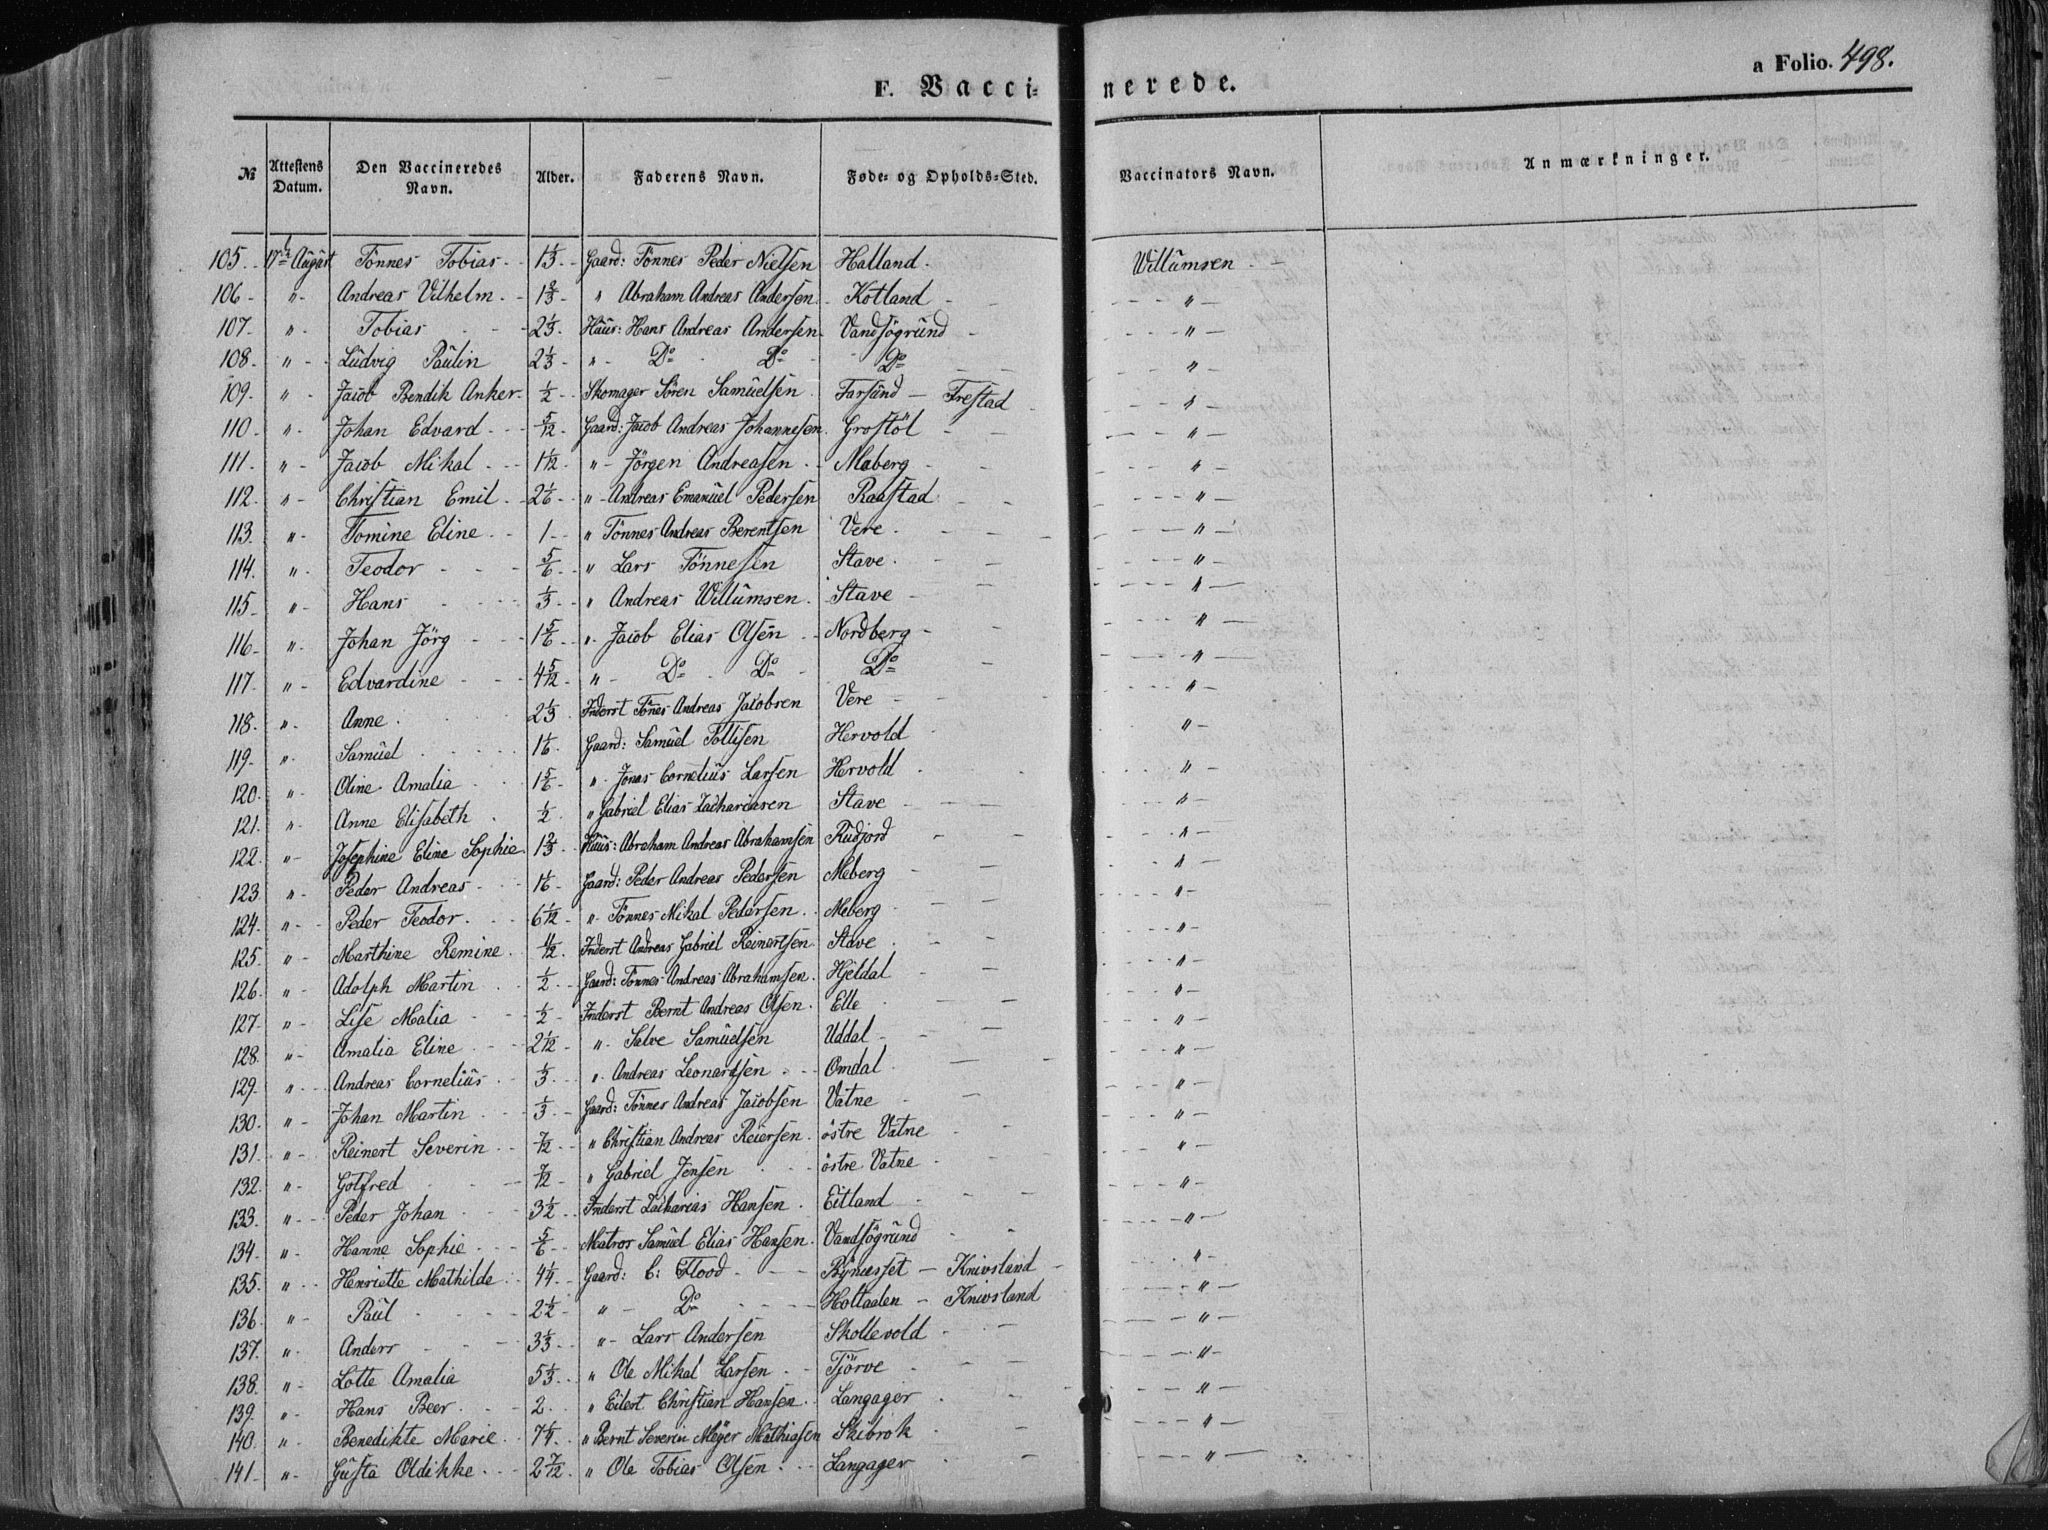 a Folio. 498.
F. Vacci- nerede.
№ Attestens Datum. Den Vaccineredes Navn. Alder. Faderens Navn. Føde- og Opholds-Sted. Vaccinators Navn. Anmærkninger.
105. 17de August Tönnes Tobias 1⅓ Gaard: Tönnes Peder Nielsen Halland. Willumsen
106 " Andreas Vilhelm 1⅔ " Abraham Andreas Andersen Kotland "
107. " Tobias 2⅓ Huus: Hans Andreas Andersen Vandsögrund "
108. " Ludvig Paulin 2⅓ " Do Do Do "
109. " Jacob Bendik Anker ½ Skomager Sören Samuelsen Farsund — Frestad "
110. " Johan Edvard 5/12 Gaard: Jacob Andreas Johannesen Grostöl "
111. " Jacob Mikal 1 1/12 " Jörgen Andreasen Maberg "
112. " Christian Emil 2⅙ " Andreas Emanuel Pedersen Raastad "
113. " Tomine Eline 1 " Tönnes Andreas Berentsen Vere "
114. " Teodor ⅚ " Lars Tönnesen Stave "
115. " Hans ⅓ " Andreas Willumsen Stave "
116. " Johan Jörg 1⅚ " Jacob Elias Olsen Nordberg "
117. " Edvardine 4 5/12 " Do Do Do "
118. " Anne 2⅓ Inderst Tönes Andreas Jacobsen Vere "
119. " Samuel 1⅙ Gaard: Samuel Tollisen Hervold "
120. " Oline Amalia 1⅚ " Jonas Cornelius Larsen Hervold "
121. " Anne Elisabeth ½ " Gabriel Elias Zachariasen Stave "
122. " Josephine Eline Sophie 1⅔ Huus: Abraham Andreas Abrahamsen Rudjord "
123. " Peder Andreas 1⅙ Gaard: Peder Andreas Pedersen Meberg "
124. " Peder Teodor. 6 1/12 " Tönnes Mikal Pedersen Meberg "
125. " Marthine Remine Inderst Andreas Gabriel Reinertsen Stave "
126. " Adolph Martin ½ Gaard: Tönnes Andreas Abrahamsen. Hjeldal "
127. " Lise Malia ½ Inderst Bernt Andreas Olsen. Elle "
128. " Amalia Eline 2 1/12 " Salve Samuelsen Uddal "
129. " Andreas Cornelius ⅓ " Andreas Leonardsen Omdal "
130. " Johan Martin ⅓ Gaard: Tönnes Andreas Jacobsen Vatne "
131. " Reinert Severin 7/12 " Christian Andreas Reiersen. östre Vatne "
132. " Gotfred 7/12 " Gabriel Jensen östre Vatne "
133. " Peder Johan 3½ Inderst Zacharias Hansen Eitland "
134. " Hanne Sophie ⅚ Matros Samuel Elias Hansen. Vandsögrund "
135. " Henriette Mathilde 4¼ Gaard: C: Flood Bynesset — Knivsland "
136. " Paul 2½ " Do Holtaalen — Knivsland "
137. " Anders 3⅓ " Lars Andersen Skollevold "
138. " Lotte Amalia 5⅓ " Ole Mikal Larsen Tjörve "
139. " Hans Beer 2 " Eilert Christian Hansen Langager "
140. " Benedikte Marie 7¼ " Bernt Severin Meyer Mathiasen Skibrok "
141. " Gusta Oldikke 2 7/12 " Ole Tobias Olsen Langager "